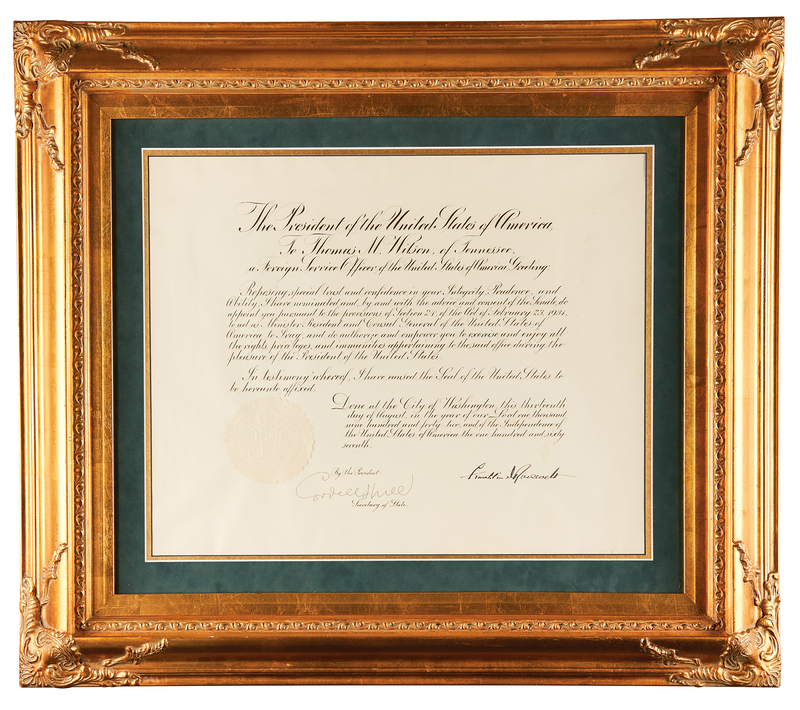 The President of the United States of America,
To Thomas M. Wilson, of Tennessee,
a Foreign Service Officer of the United States of America, Greeting:
Reposing special trust and confidence in your Integrity, Prudence, and
Ability, I have nominated and, by and with the advice and consent of the Senate, do
appoint you pursuant to the provisions of Section 24 of the Act of February 23, 1931,
to act as Minister Resident and Consul General of the United States of
America to Iraq, and do authorize and empower you to exercise and enjoy all
the rights, privileges, and immunities appertaining to the said office during the
pleasure of the President of the United States.
In testimony whereof, I have caused the Seal of the United States to
be hereunto affixed.
Done at the City of Washington, this thirteenth
day of August, in the year of our Lord one thousand
nine hundred and forty-two, and of the Independence of
the United States of America the one hundred and sixty
seventh.
By the President:
Franklin D Roosevelt
Cordell Hull
Secretary of State.